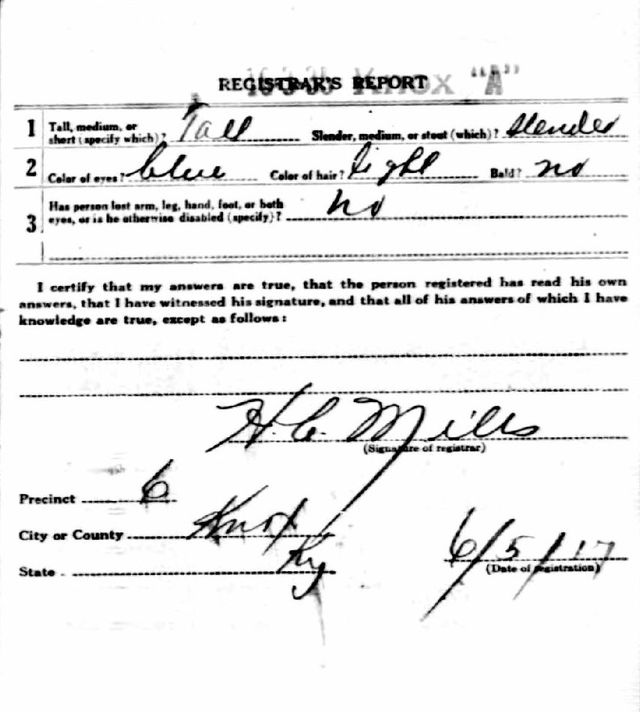 REGISTRAR'S REPORT "A"
1 Tall, medium, or short (specify which)? Tall Slender, medium, or stout (which)? Slender
2 Color of eyes? blue Color of hair? light Bald? no
3 Has person lost arm, leg, hand, foot, or both
eyes, or is he otherwise disabled (specify)? no
I certify that my answers are true, that the person registered has read his own
answers, that I have witnessed his signature, and that all of his answers of which I have
knowledge are true, except as follows:
H. C. Mills
(Signature of registrar)
Precinct 6
City or County Knox
State Ky
6/5/17
(Date of registration)